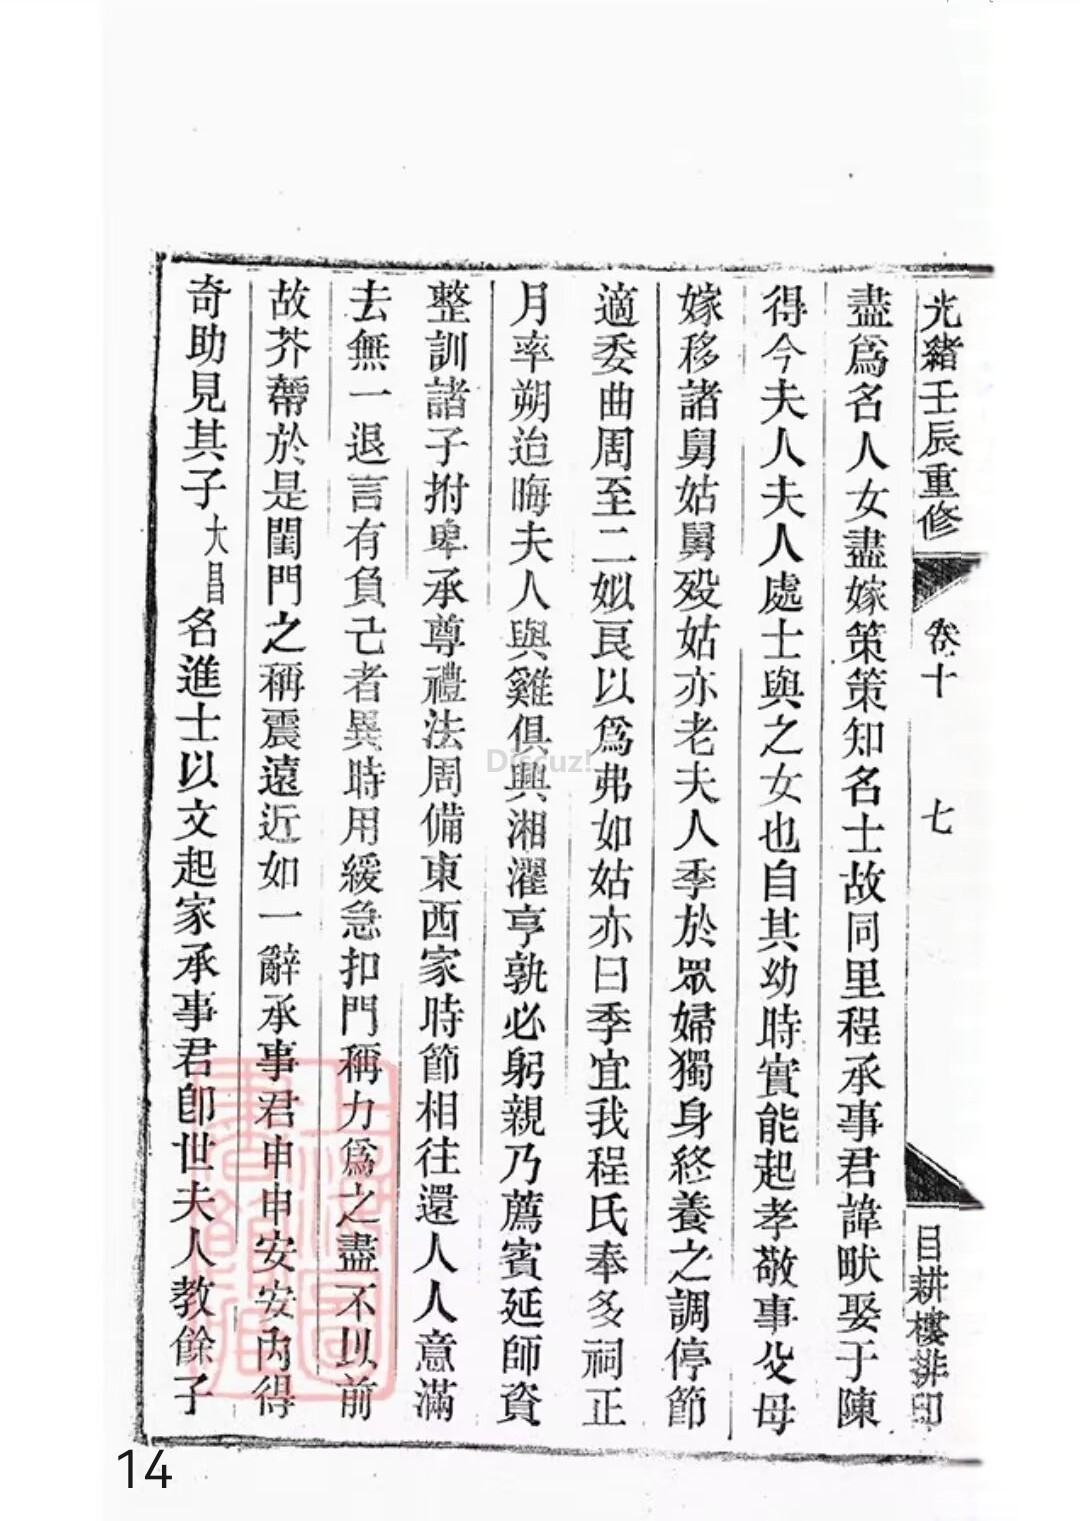 光緒壬辰重修 卷十 七 目耕樓排印
盡爲名人女盡嫁策策知名士故同里程承事君諱畎娶于陳
得今夫人夫人處士與之女也自其幼時實能起孝敬事父母
嫁移諸舅姑舅殁姑亦老夫人季於眾婦獨身終養之調停節
適委曲周至二姒艮以爲弗如姑亦曰季宜我程氏奉多祠正
月率朔迨晦夫人與雞俱興湘濯亨孰必躬親乃薦賓延師資
整訓諸子拊卑承尊禮法周備東西家時節相往還人人意滿
去無一退言有負己者異時用緩急扣門稱力爲之盡不以前
故芥蔕於是閨門之稱震遠近如一辭承事君申申安安內得
奇助見其子大昌名進士以文起家承事君卽世夫人教餘子
上海圖書館藏
Discuz!
14